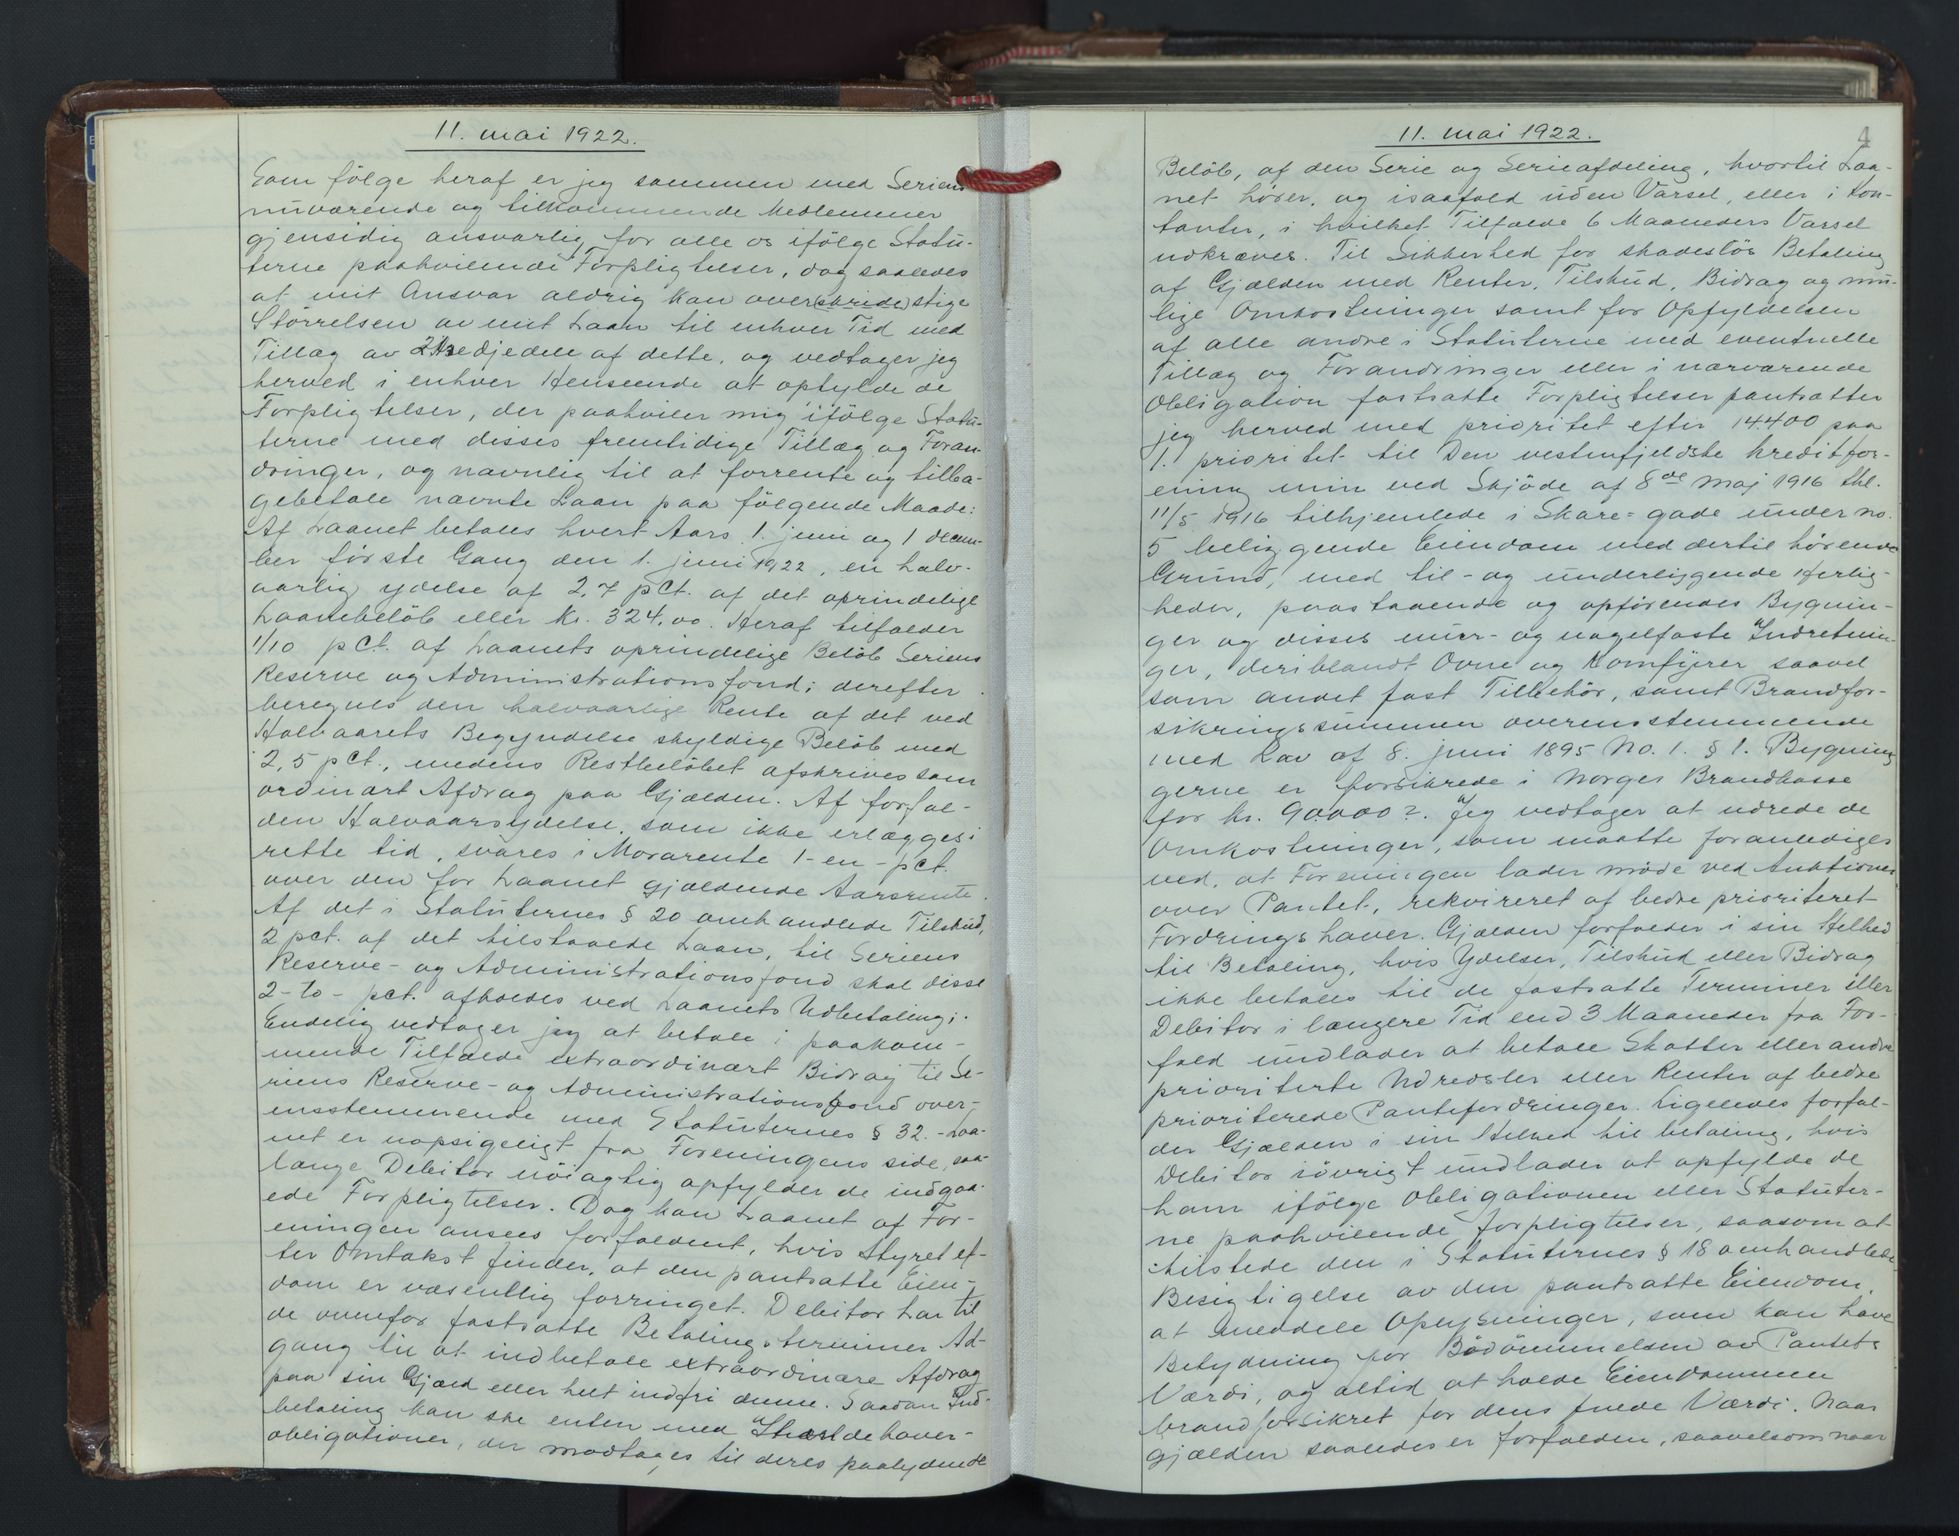 11. mai 1922.
Som følge heraf er jeg sammen med Seriens
nuværende og tilkommende Medlemmer
gjensidig ansvarlig for alle os ifølge Statu-
terne paahvilende Forpligtelser, dog saaledes
at mit Ansvar aldrig kan over(skride)stige
Størrelsen av mit Laan til enhver Tid med
Tillæg av 2 tredjedele af dette, og vedtager jeg
herved i enhver Henseende at opfylde de
Forpligtelser, der paahviler mig ifølge Statu-
terne med disses fremtidige Tillæg og Foran-
dringer, og navnlig til at forrente og tilba-
gebetale nævnte Laan paa følgende Maade:
Af Laanet betales hvert Aars 1. juni og 1 decem-
ber første Gang den 1. juni 1922, en halv-
aarlig ydelse af 2,7 pct. af det oprindelige
Laanebeløb eller kr. 324,00. Heraf tilfalder
1/10 pct. af Laanets oprindelige Beløb Seriens
Reserve og Administrationsfond; derefter
beregnes den halvaarlige Rente af det ved
Halvaarets Begyndelse skyldige Beløb med
2,5 pct., medens Restbeløbet afskrives som
ordinært Afdrag paa Gjælden. Af forfal-
den Halvaarsydelse, som ikke erlægges i
rette tid, svares i Morarente 1-en-pct.
over den for Laanet gjældende Aarsrente.
Af det i Statuternes § 20 omhandlede Tilskud,
2 pct. af det tilstaaede Laan, til Seriens
Reserve- og Administrationsfond skal disse
2-to- pct. afholdes ved Laanets Udbetaling;.
Endelig vedtager jeg at betale i paakom-
mende Tilfælde extraordinært Bidrag til Se-
riens Reserve- og Administrationsfond over-
ensstemmende med Statuternes § 32.- Laa-
net er uopsigeligt fra Foreningens side, saa-
længe Debitor nøiagtig opfylder de indgaa-
ede Forpligtelser. Dog kan Laanet af For-
eningen ansees forfaldent, hvis Styret ef-
ter Omtakst finder, at den pantsatte Eien-
dom er væsentlig forringet. Debitor har til
de ovenfor fastsatte Betalingsterminer Ad-
gang til at indbetale extraordinære Afdrag
paa sin Gjæld eller helt indfri denne. Saadan Ind-
betaling kan ske enten med Ihændehaver-
obligationer, der modtages til deres paalydende
11. mai 1922.
4
Beløb, af den Serie og Serieafdeling, hvortil Laa-
net hører, og isaafald uden Varsel, eller i kon-
tanter, i hvilket Tilfælde 6 Maaneders Varsel
udkræves. Til Sikkerhed for skadesløs Betaling
af Gjælden med Renter, Tilskud, Bidrag og mu-
lige Omkostninger samt for Opfyldelsen
af alle andre i Statuterne med eventuelle
Tillæg og Forandringer eller i nærværende
Obligation fastsatte Forpligtelser pantsætter
jeg herved med prioritet efter 14400 paa
1. prioritet til Den vestenfjeldske kreditfor-
ening min ved Skjøde af 8de Maj 1916 thl.
11/5 1916 tilhjemlede i Skare-gade under no.
5 beliggende Eiendom med dertil hørende
Grund, med til- og underliggende Herlig-
heder, paastaaende og opførendes Bygnin-
ger og disses mur- og nagelfaste Indretnin-
ger, deriblandt Ovne og Komfyrer saavel
som andet fast Tilbehør, samt Brandfor-
sikringssummen overensstemmende
med Lov af 8. juni 1895 No. 1. § 1. Bygnin
gerne er forsikrede i Norges Brandkasse
for kr. 90000?. Jeg vedtager at udrede de
Omkostninger, som maatte foranlediges
ved, at Foreningen lader møde ved Auktioner
over Pantet, rekvireret af bedre prioriteret
Fordringshaver. Gjælden forfalder i sin Helhed
til Betaling, hvis Ydelser, Tilskud eller Bidrag
ikke betales til de fastsatte Terminer eller
Debitor i længere Tid end 3 Maaneder fra For-
fald undlader at betale Skatter eller andre
prioriterte Udredsler eller Renter af bedre
prioriterede Pantefordringer. Ligeledes forfal-
der Gjælden i sin Helhed til betaling, hvis
Debitor iøvrigt undlader at opfylde de
ham ifølge Obligationen eller Statuter-
ne paahvilende forpligtelser, saasom at
tilstede den i Statuternes § 18 omhandlede
Besigtigelse av den pantsatte Eiendom,
at meddele Oplysninger, som kan have
Betydning for Bedømmelsen av Pantets
Værdi, og altid at holde Eiendommen
brandforsikret for dens fulde Værdi. Naar
gjælden saaledes er forfalden, saavelsom naar